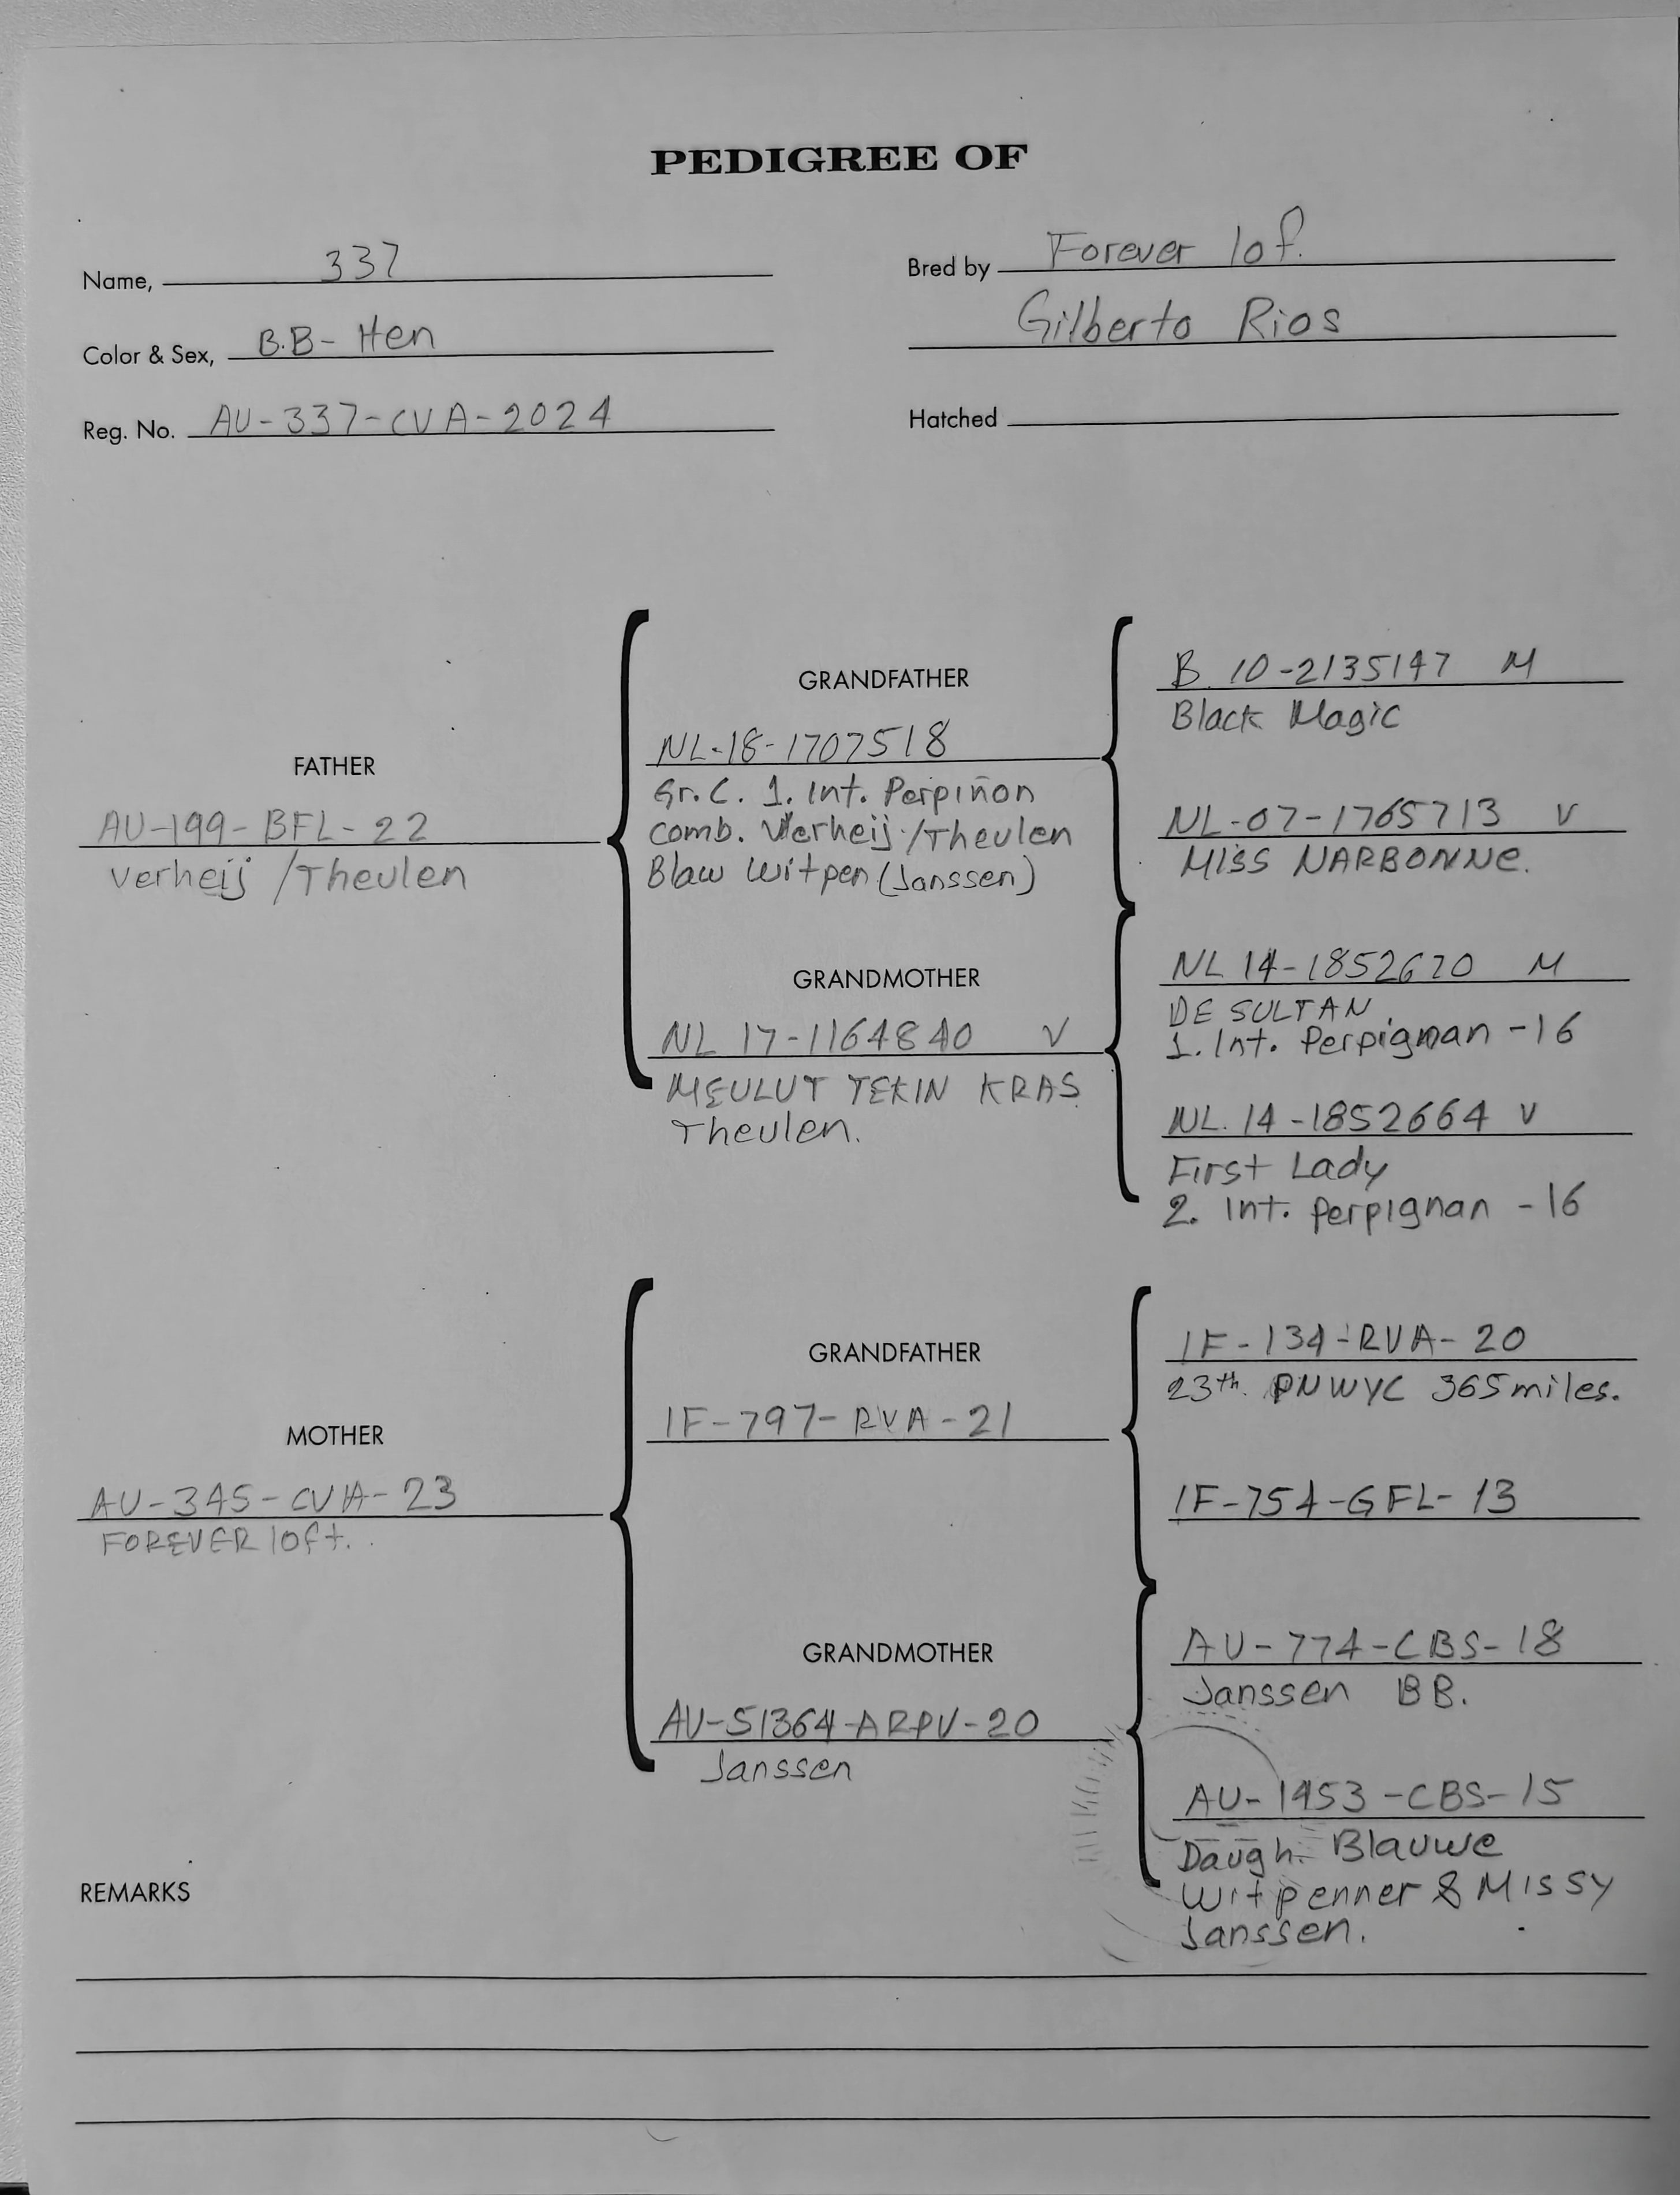 PEDIGREE OF
Name, 337
Bred by Forever lof.
Gilberto Rios
Color & Sex, B.B- Hen
Reg. No. AU-337-CVA-2024
Hatched
FATHER
AU-199-BFL-22
Verheij /Theulen
GRANDFATHER
NL-18-1707518
Gr.C. 1. Int. Perpiñon
comb. Verheij/Theulen
Blaw Witpen (Janssen)
GRANDMOTHER
NL 17-1164840 V
MEULUT TEKIN KRAS
Theulen.
B 10-2135147 M
Black Magic
NL-07-1765713 V
MISS NARBONNE.
NL 14-1852670 M
DE SULTAN
1. Int. Perpignan -16
NL. 14-1852664 V
First Lady
2. Int. perpignan -16
MOTHER
AU-345-CVA-23
FOREVER loft.
GRANDFATHER
IF-797-RVA-21
GRANDMOTHER
AU-51364-ARPV-20
Janssen
IF-134-RVA-20
23th. PNWYC 365 miles.
IF-754-GFL-13
AU-774-CBS-18
Janssen BB.
AU-1453-CBS-15
Daugh. Blauwe
Witpenner & Missy
Janssen.
REMARKS